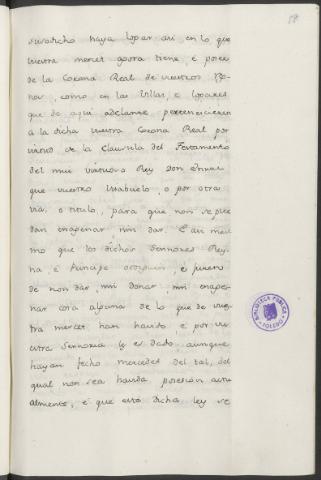 58
susodicho haya lopar asi, en lo que
vuestra merced agora tiene, é posee
de la Corona Real de vuestros Rey
nos, como en las Villas, é Logares
que de aqui adelante pertenescieren
á la dicha vuestra Corona Real por
virtud de la Clausula del Testamento
del mui virtuoso Rey Don Enrrique
que vuestro Visabuelo, o por otra
via, o titulo, para que non se pue
dan enagenar, nin dar. E asi mes
mo que los dichos Sennores Rey
na, é Principe otorguen, é juren
de non dar, nin donar, nin enage
nar cosa alguna de lo que de vues
tra merced han havido, é por vu
estra Sennoria le es dado, aunque
hayan fecho mercedes del tal, del
qual non sea havida posesion actu
almente, é que esta dicha ley se
BIBLIOTECA PUBLICA
TOLEDO